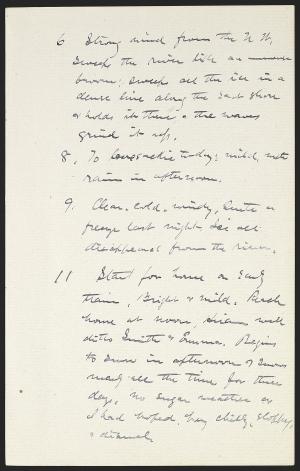 6 Strong wind from the N.W.
sweeps the river like an
broom; sweeps all the ice in a
dense line along the East shore
& holds it there & the waves
grind it up.
8, To to-day; mild, wet
rain in afternoon.
9. Clear, cold, windy, quite a
freeze last night, Ice all
disappeared from the river.
11 Start for home on early
train, Bright & mild. Reach
home at noon, dreams well
ditto Smith & Emma. Begins
to snow in afternoon & snows
nearly all the time for three
days, no sugar weather as
I had hoped, but chilly, sloppy,
& dismal